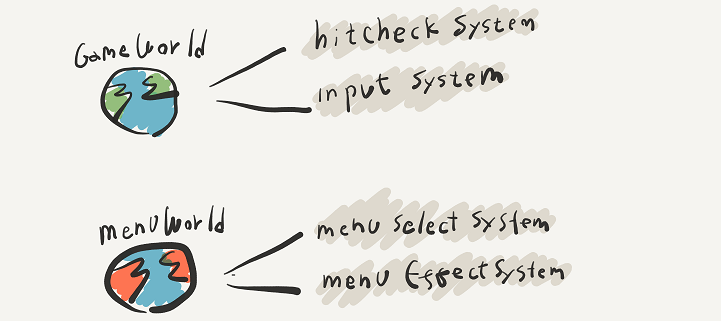 GameWorld
hitcheck System
input System
menuWorld
menu select System
menu EffectSystem